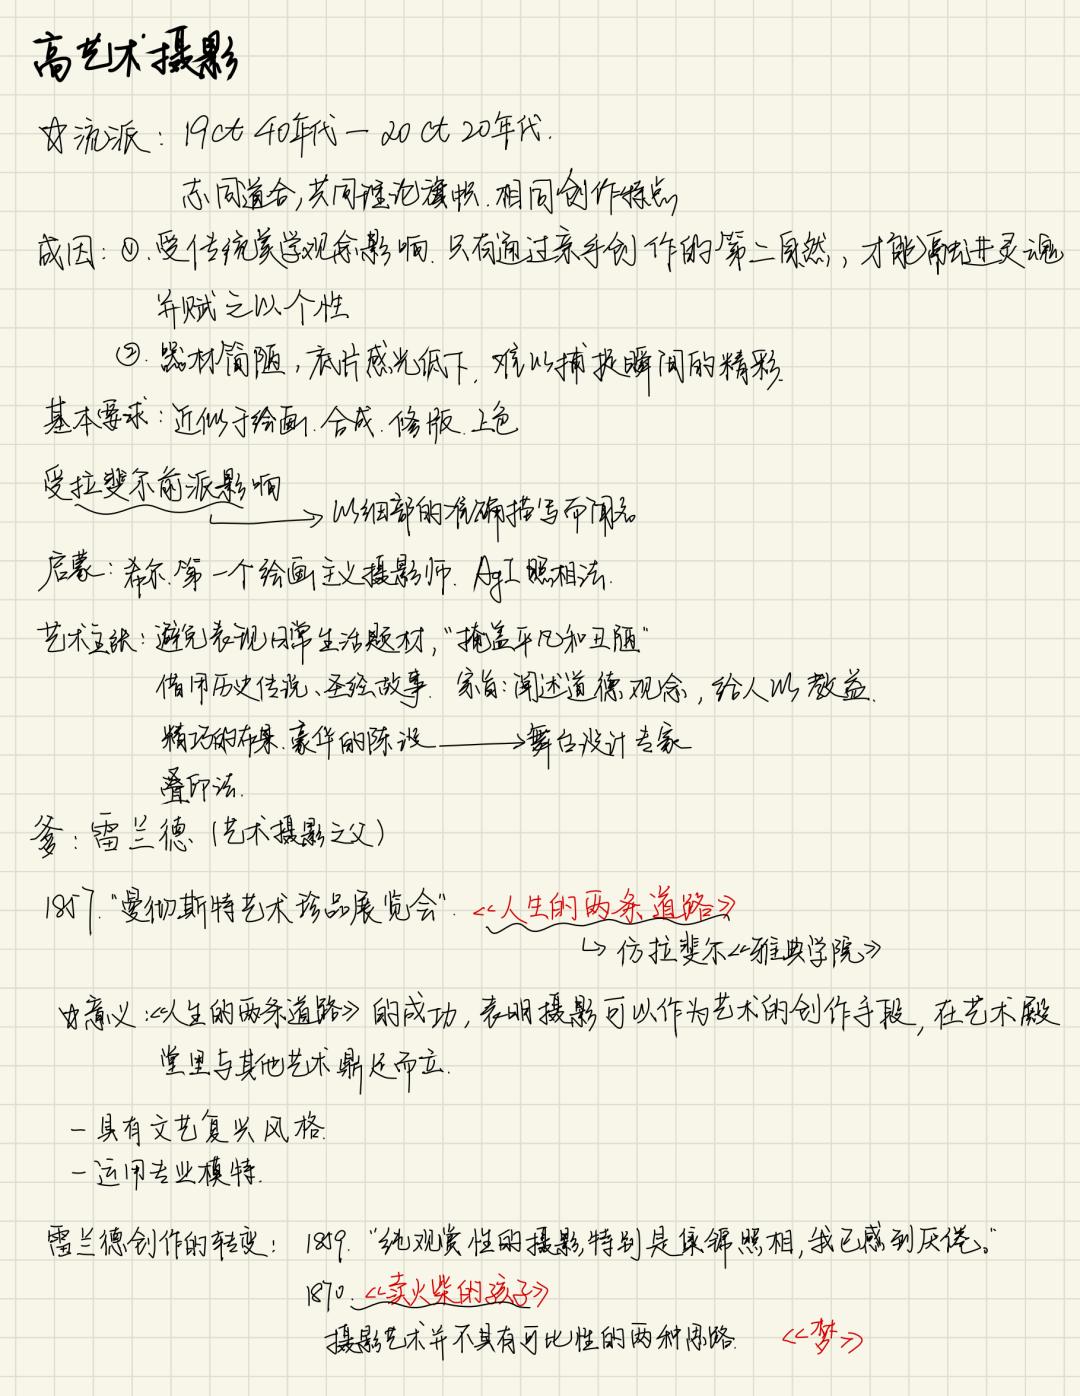 高艺术摄影
☆流派: 19ct 40年代 — 20ct 20年代.
志同道合,共同理论旗帜.相同创作特点
成因: ①.受传统美学观念影响.只有通过亲手创作的第二自然,才能融进灵魂
并赋之以个性
②.器材简陋,底片感光低下.难以捕捉瞬间的精彩.
基本要求:近似于绘画.合成.修版.上色
受拉斐尔前派影响
→以细部的准确描写而闻名
启蒙:希尔.第一个绘画主义摄影师. AgI照相法.
艺术主张:避免表现日常生活题材,"掩盖平凡和丑陋"
借用历史传说、圣经故事. 宗旨:阐述道德观念,给人以教益.
精巧的布景.豪华的陈设→舞台设计专家
叠印法.
爹:雷兰德(艺术摄影之父)
1857."曼彻斯特艺术珍品展览会". 《人生的两条道路》
↳仿拉斐尔《雅典学院》
☆意义:《人生的两条道路》的成功,表明摄影可以作为艺术的创作手段,在艺术殿
堂里与其他艺术鼎足而立.
-具有文艺复兴风格.
-运用专业模特.
雷兰德创作的转变: 1859. "纯观赏性的摄影,特别是集锦照相,我已感到厌倦。"
1870.《卖火柴的孩子》
摄影艺术并不具有可比性的两种思路. 《梦》